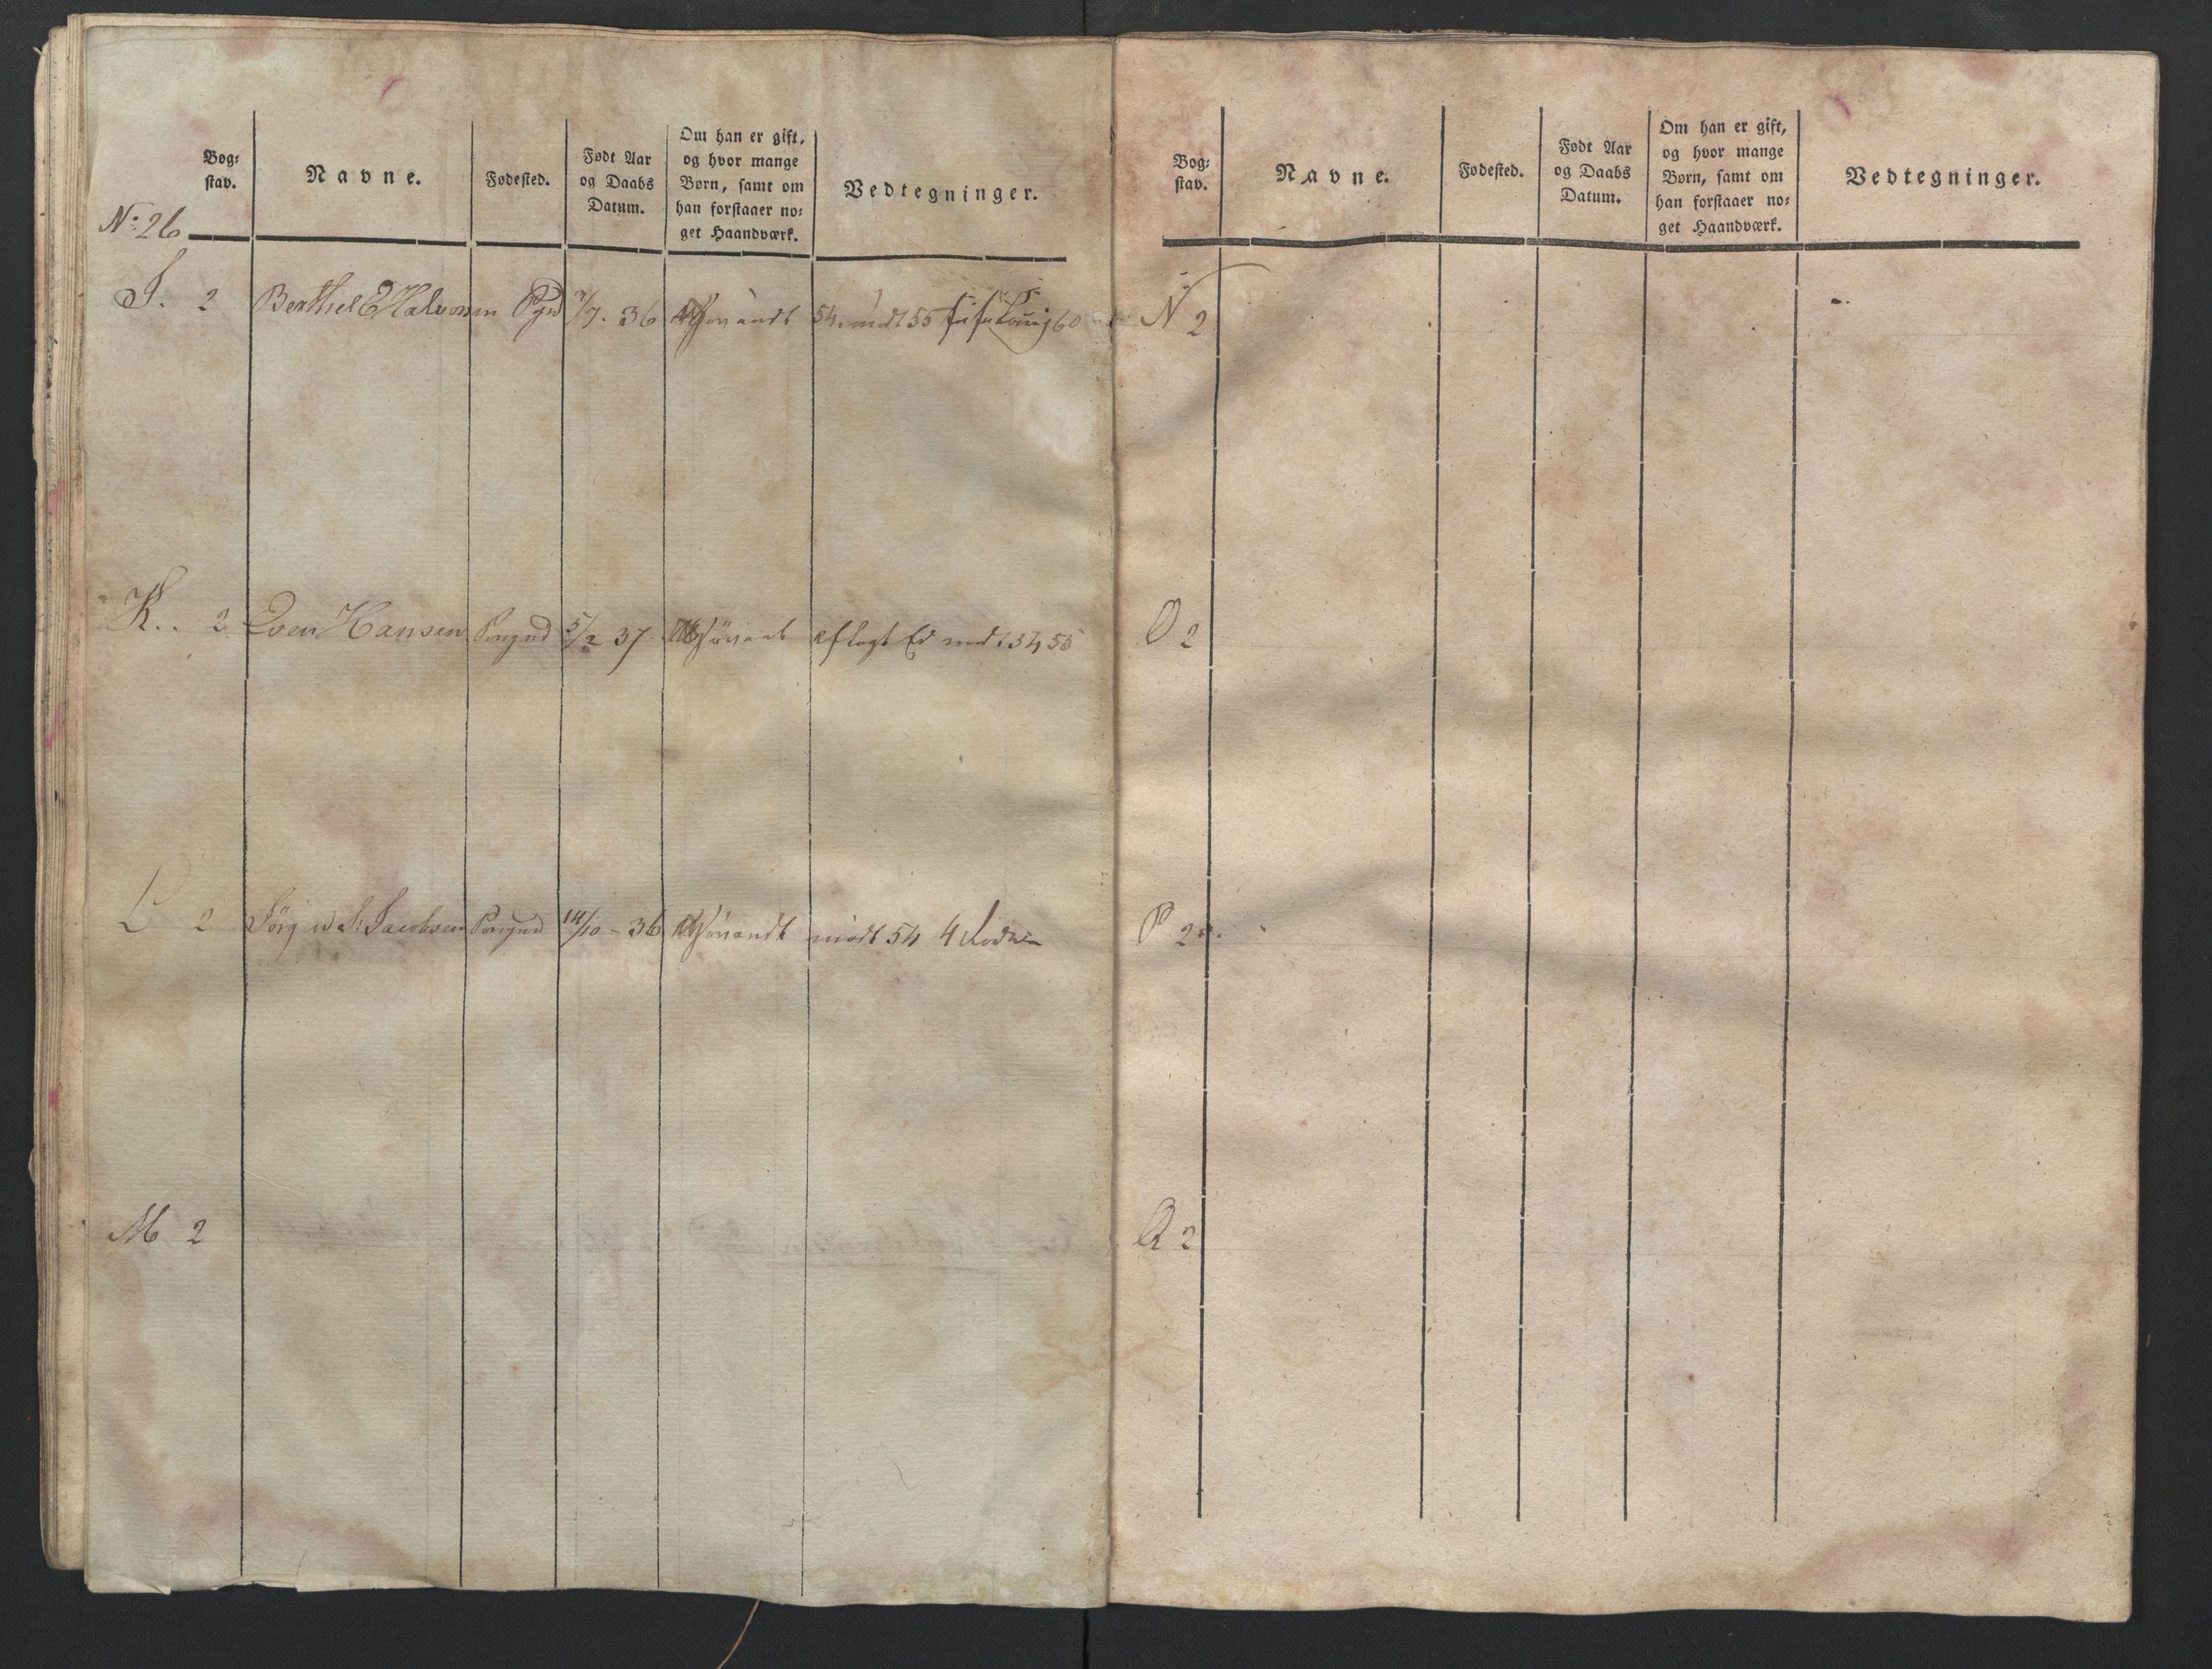 Bog-
stav.
Navne.
Fødested.
Født Aar
og Daabs
Datum.
Om han er gift,
og hvor mange
Børn, samt om
han forstaaer no-
get Haandværk.
Vedtegninger.
No: 26
I. 2 Berthel E Halvorsen Pgrd 7/7. 36 54. mødt 55 60
K.. 2 Even Hansen Porsgrd 5/2 37 aflagt Ed mødt 54 55
L 2 Jörg Jacobsen Porsgrd 14/10 - 36 mødt 54 4
M 2
Bog-
stav.
Navne.
Fødested.
Født Aar
og Daabs
Datum.
Om han er gift,
og hvor mange
Børn, samt om
han forstaaer no-
get Haandværk.
Vedtegninger.
N 2
O 2
P 2
Q 2